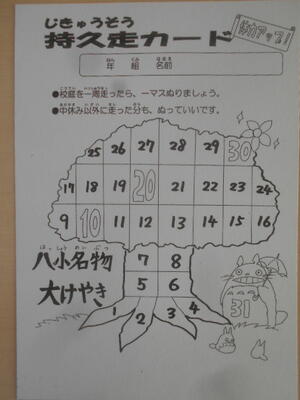 じきゅうそう
持久走カード
体力アップ!
ねん くみ なまえ
年 組 名前
●校庭を一周走ったら、一マスぬりましょう。
●中休み以外に走った分も、ぬっていいです。
25 26 27 28 29 30
17 18 19 20 21 22 23 24
9 10 11 12 13 14 15 16
はっしょうめいぶつ
八小名物
大けやき
7 8
5 6
1 2 3 4
31